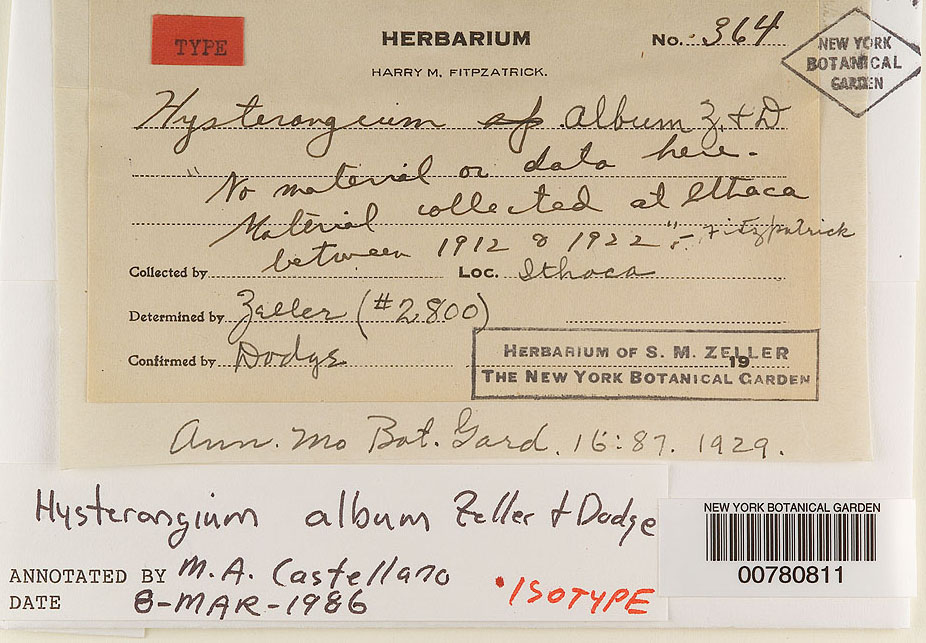 TYPE
HERBARIUM
No. 364
HARRY M. FITZPATRICK.
NEW YORK
BOTANICAL
GARDEN
Hysterangium sp album Z. + D
"No material or data here.
Material collected at Ithaca
between 1912 & 1922". - Fitzpatrick
Collected by
Loc. Ithaca
Determined by Zeller (#2800)
Confirmed by Dodge
19
HERBARIUM OF S. M. ZELLER
THE NEW YORK BOTANICAL GARDEN
Ann. Mo Bot. Gard. 16:87. 1929.
Hysterangium album Zeller + Dodge
ANNOTATED BY M.A. Castellano
DATE 8-MAR-1986
*ISOTYPE
NEW YORK BOTANICAL GARDEN
00780811